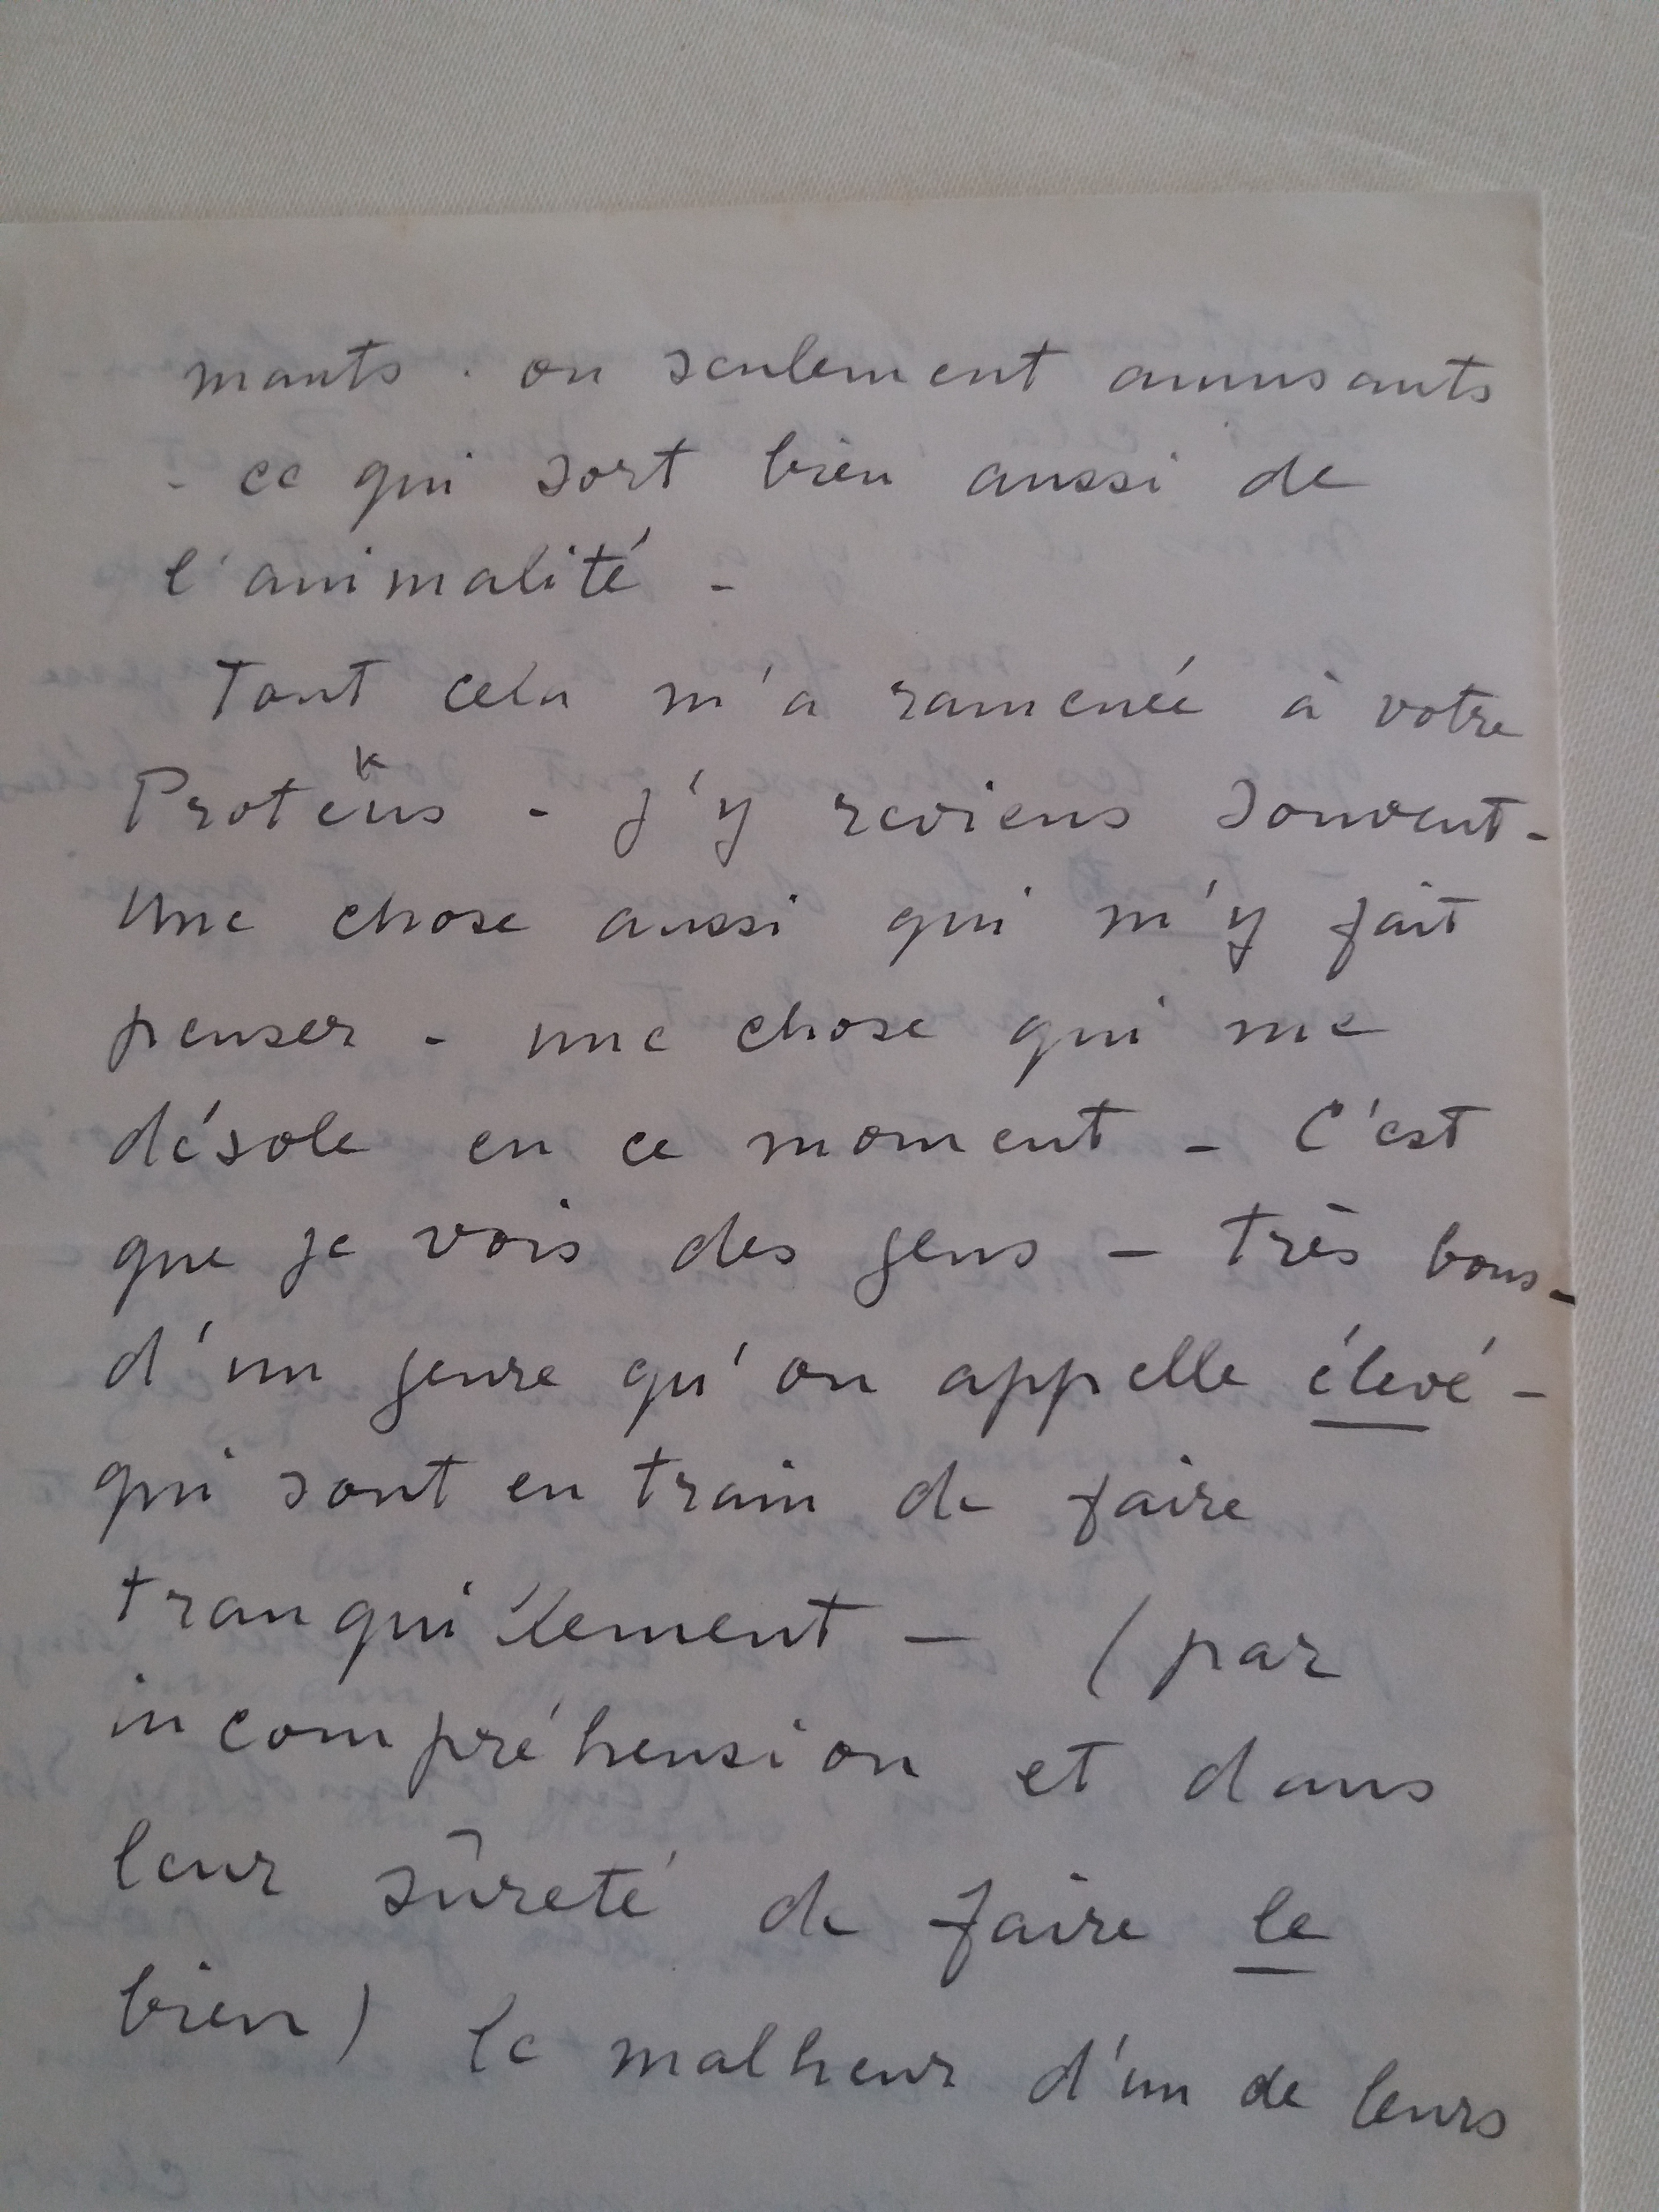 mants. ou seulement amusants
- ce qui sort bien aussi de
l'animalité -
Tout cela m'a ramenée à votre
Protëus - J'y reviens souvent -
Une chose aussi qui m'y fait
penser - une chose qui me
désole en ce moment - C'est
que je vois des gens - très bons -
d'un genre qu'on appelle élevé -
qui sont en train de faire
tranquillement - (par
incompréhension et dans
leur sûreté de faire le
bien) le malheur d'un de leurs